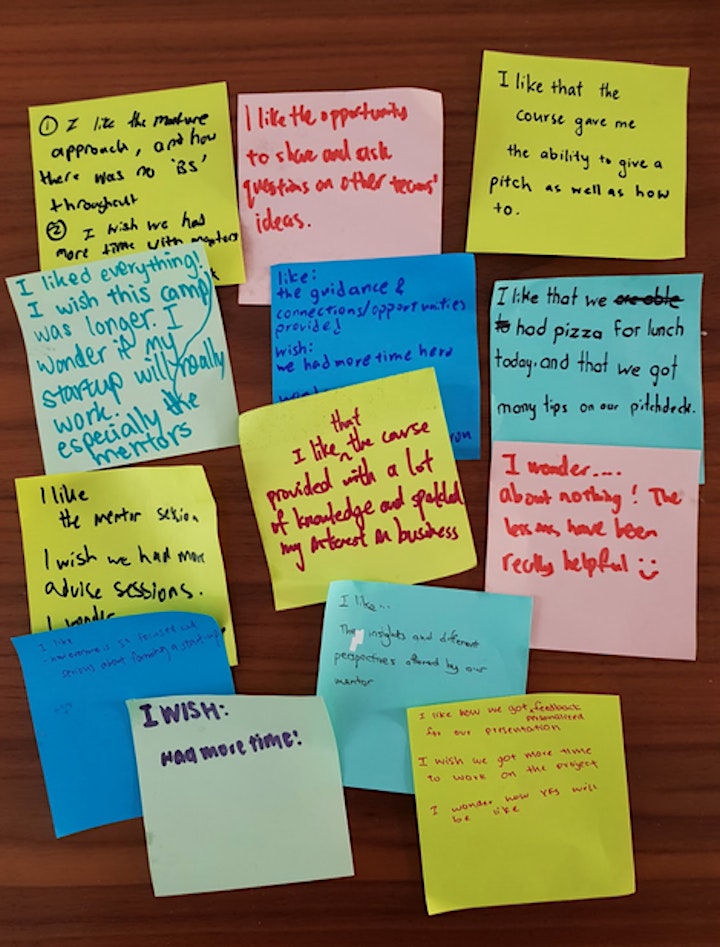 ① I like the mature
approach, and how
there was no 'BS'
throughout
② I wish we had
more time with mentors
I like the opportunity
to share and ask
questions on other teams'
ideas.
I like that the
course gave me
the ability to give a
pitch as well as how
to.
I liked everything!
I wish this camp
was longer. I
wonder if my
startup will really
work.
especially the
mentors
like:
the guidance &
connections/opportunities
provided
wish:
we had more time here
I like that we are able
to had pizza for lunch
today, and that we got
many tips on our pitchdeck.
that
I like the course
provided with a lot
of knowledge and sparked
my interest in business
I wonder....
about nothing! The
lessons have been
really helpful :)
I like
the mentor session
I wish we had more
advice sessions.
I wonder
I like
how everyone is so focused and
serious about forming a start-up
I like...
The insights and different
perspectives offered by our
mentor
I WISH:
Had more time!
I like how we got feedback
personalized
for our presentation
I wish we got more time
to work on the project
I wonder how YES will
be like